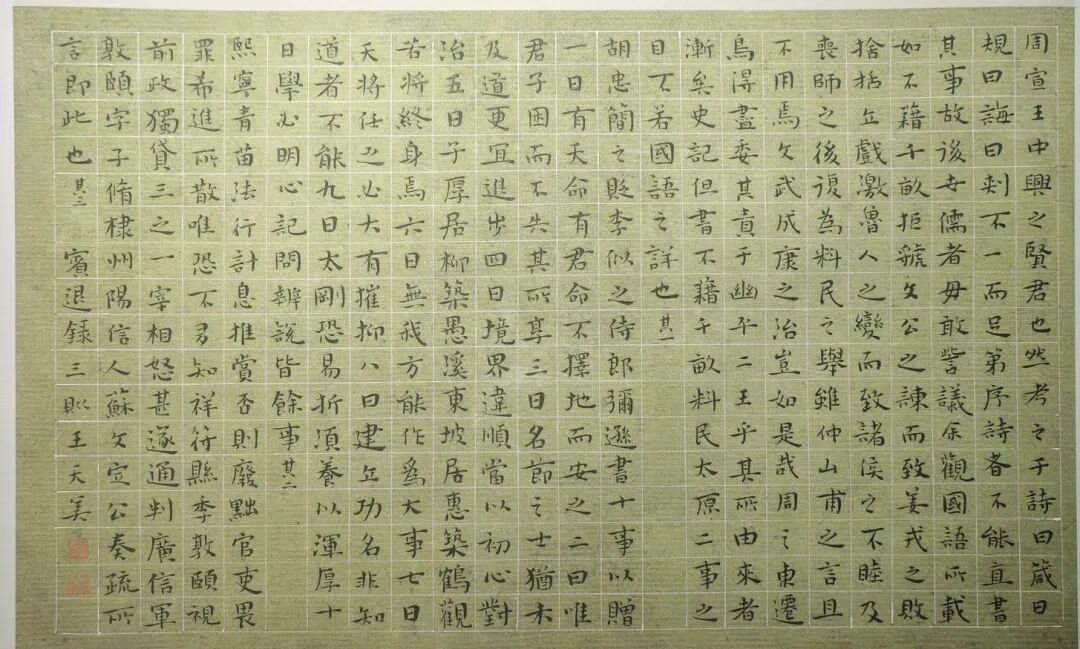 周宣王中興之賢君也然考之于詩曰箴曰
規曰誨曰刺不一而足第序詩者不能直書
其事故後世儒者毋敢訾議余觀國語所載
如不藉千畝拒虢文公之諫而致姜戎之敗
捨括立戲激魯人之變而致諸侯之不睦及
喪師之後復為料民之舉雖仲山甫之言且
不用焉文武成康之治豈如是哉周之東遷
烏得盡委其責于幽平二王乎其所由來者
漸矣史記但書不藉千畝料民太原二事之
目不若國語之詳也其一
胡忠簡之貶李似之侍郎彌遜書十事以贈
一曰有天命有君命不擇地而安之二曰唯
君子困而不失其所享三曰名節之士猶未
及道更宜進步四曰境界違順當以初心對
治五曰子厚居柳築愚溪東坡居惠築鶴觀
若將終身焉六曰無我方能作為大事七曰
天將任之必大有摧抑八曰建立功名非知
道者不能九曰太剛恐易折須養以渾厚十
曰學必明心記問辨說皆餘事其二
熙寧青苗法行計息推賞否則廢黜官吏畏
罪希進所散唯恐不多知祥符縣季敦頤視
前政獨貸三之一宰相怒甚遂通判廣信軍
敦頤字子脩棣州陽信人蘇文定公奏疏所
言即此也其三 賓退錄三則王天美